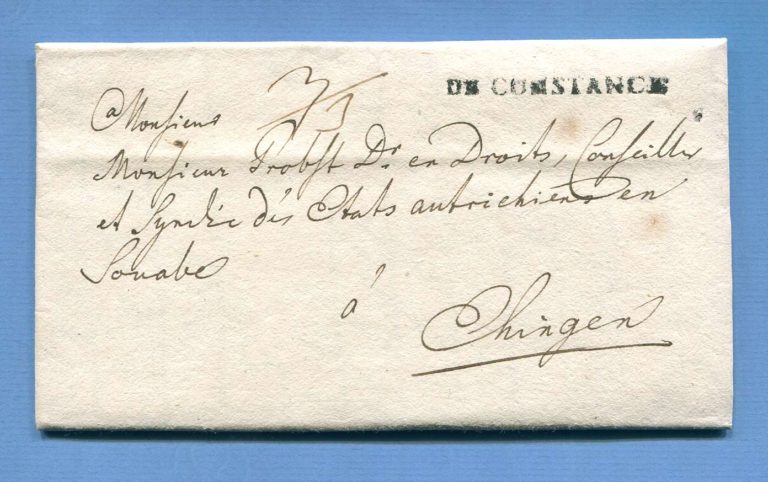 DE CONSTANCE
a Monsieur
Monsieur Probst Dr en Droits, Conseiller
et Syndic dés Etats autrichiens en
Souabe
à
Ehingen